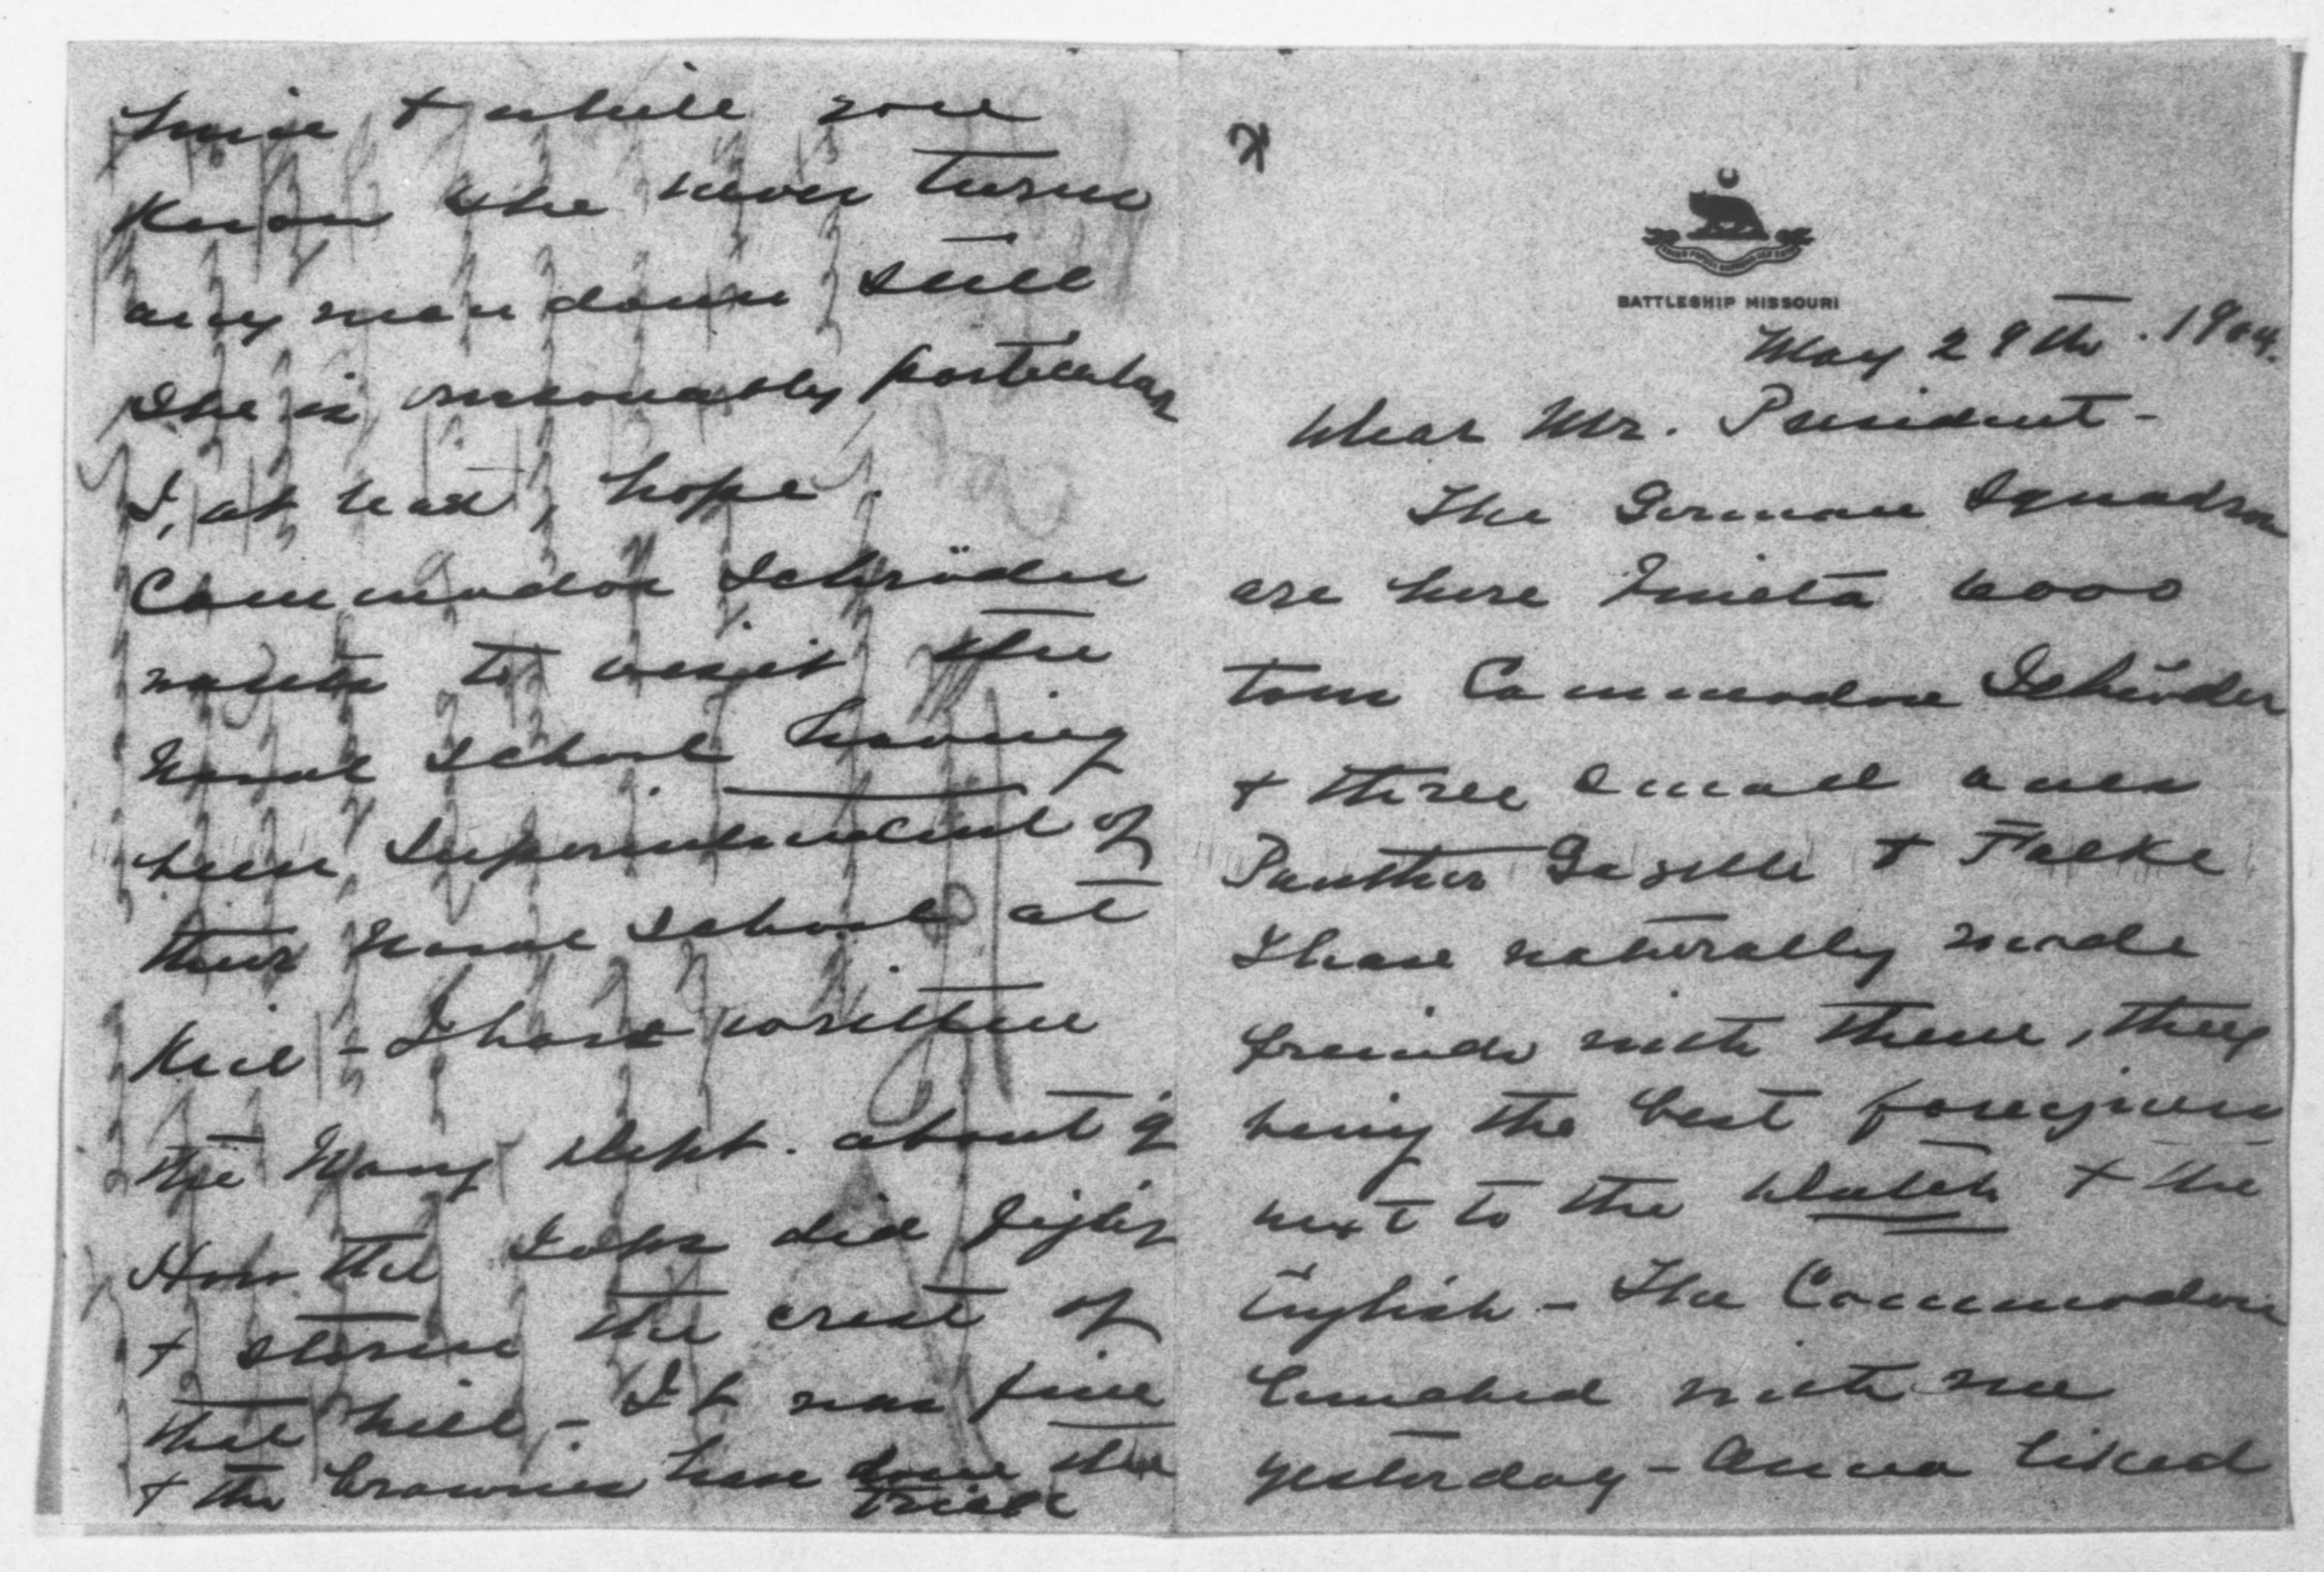 BATTLESHIP MISSOURI
May 29th. 1904.
Dear Mr. President -
The German Squadron
are here Vineta 6000
tons Commodore Schröder
+ three small ones
Panther Gazelle + Falke
I have naturally made
freinds with them, they
being the best foreigners
next to the Dutch + the
English - The Commodore
lunched with me
yesterday - Anna liked
him + while you
Know she never turns
any man down still
She is reasonably particular
I, at least, hope.
Commodore Schröder
wants to visit the
Naval School having
been Superintendent of
their Naval School at
Kiel - I have written
the Navy Dept. about it
How the Japs did fight
+ storm the crest of
that hill - It was fine
+ the brownies have done the
trick